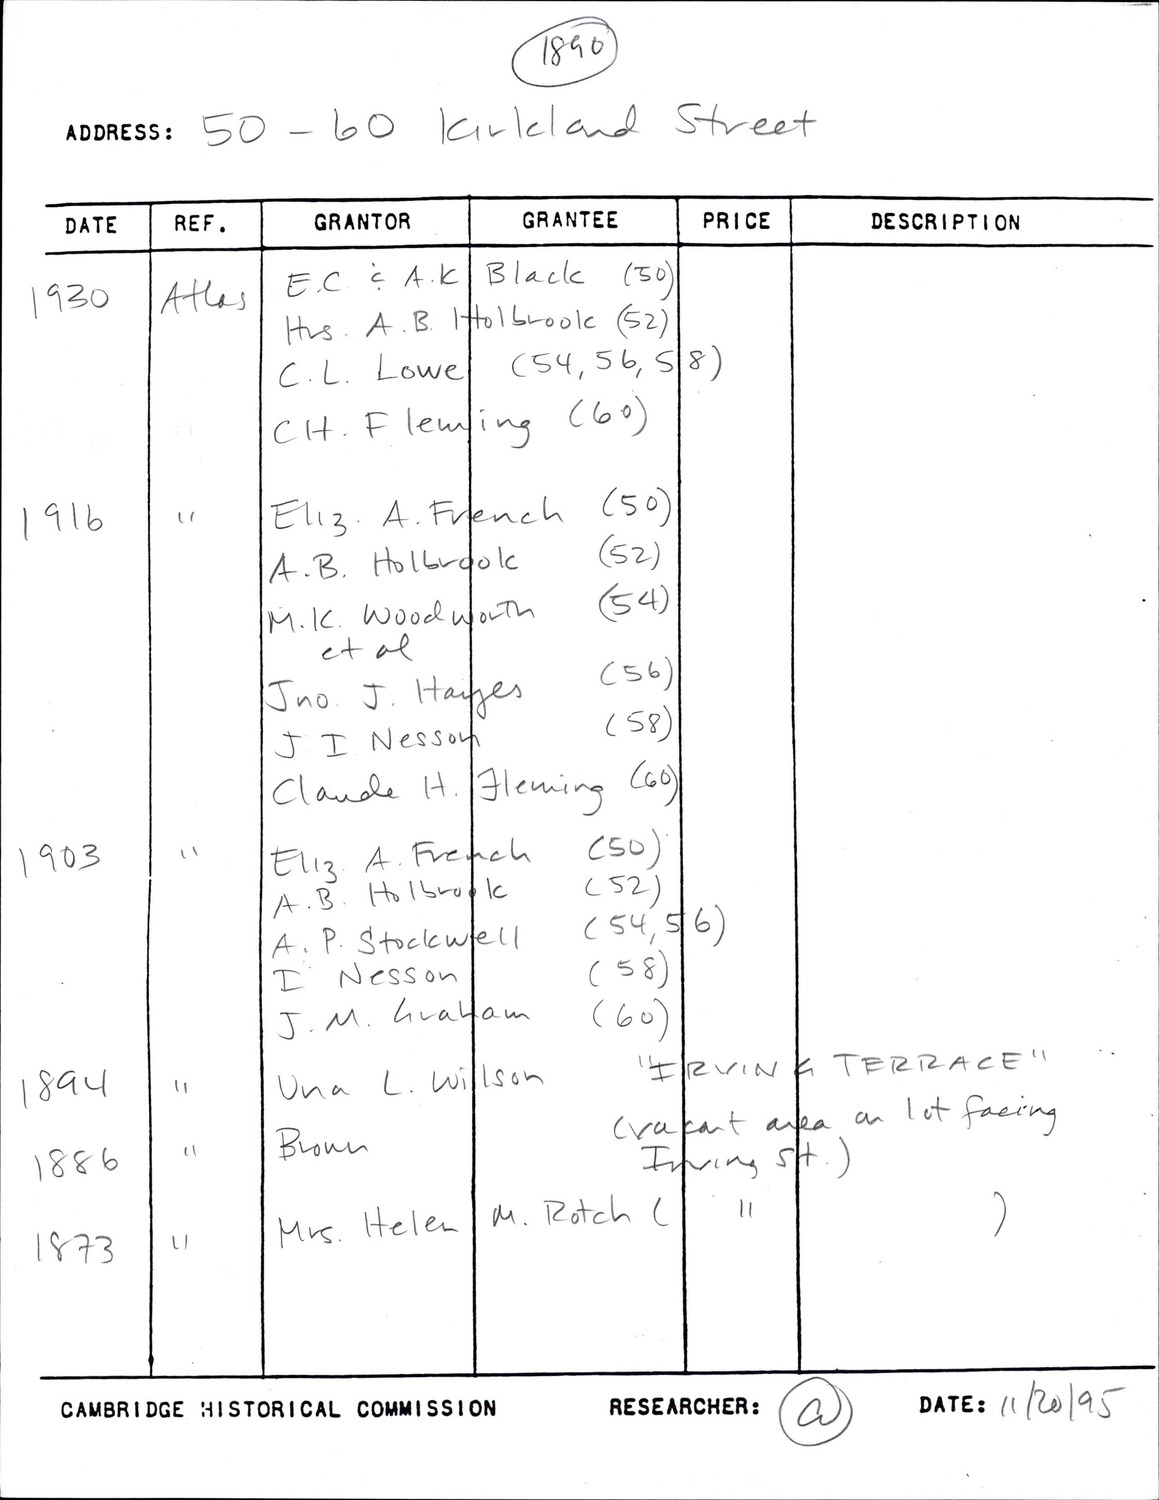 1890
ADDRESS: 50 - 60 Kirkland Street
DATE REF. GRANTOR GRANTEE PRICE DESCRIPTION
1930 Atlas E.C & A.K Black (50)
Hrs. A.B. Holbrook (52)
C.L. Lowe (54, 56, 58)
C H. Fleming (60)
1916 " Eliz. A. French (50)
A.B. Holbrook (52)
M.K. Woodworth (54)
et al
Jno. J. Hayes (56)
J I Nesson (58)
Claude H. Fleming (60)
1903 " Eliz. A. French (50)
A.B. Holbrook (52)
A. P. Stockwell (54, 56)
I Nesson (58)
J. M. Graham (60)
1894 " Una L. Wilson "IRVING TERRACE"
1886 " Brown (vacant area on lot facing
Irving St.)
1873 " Mrs. Helen M. Rotch ( " )
CAMBRIDGE HISTORICAL COMMISSION RESEARCHER: DATE: 11/20/95